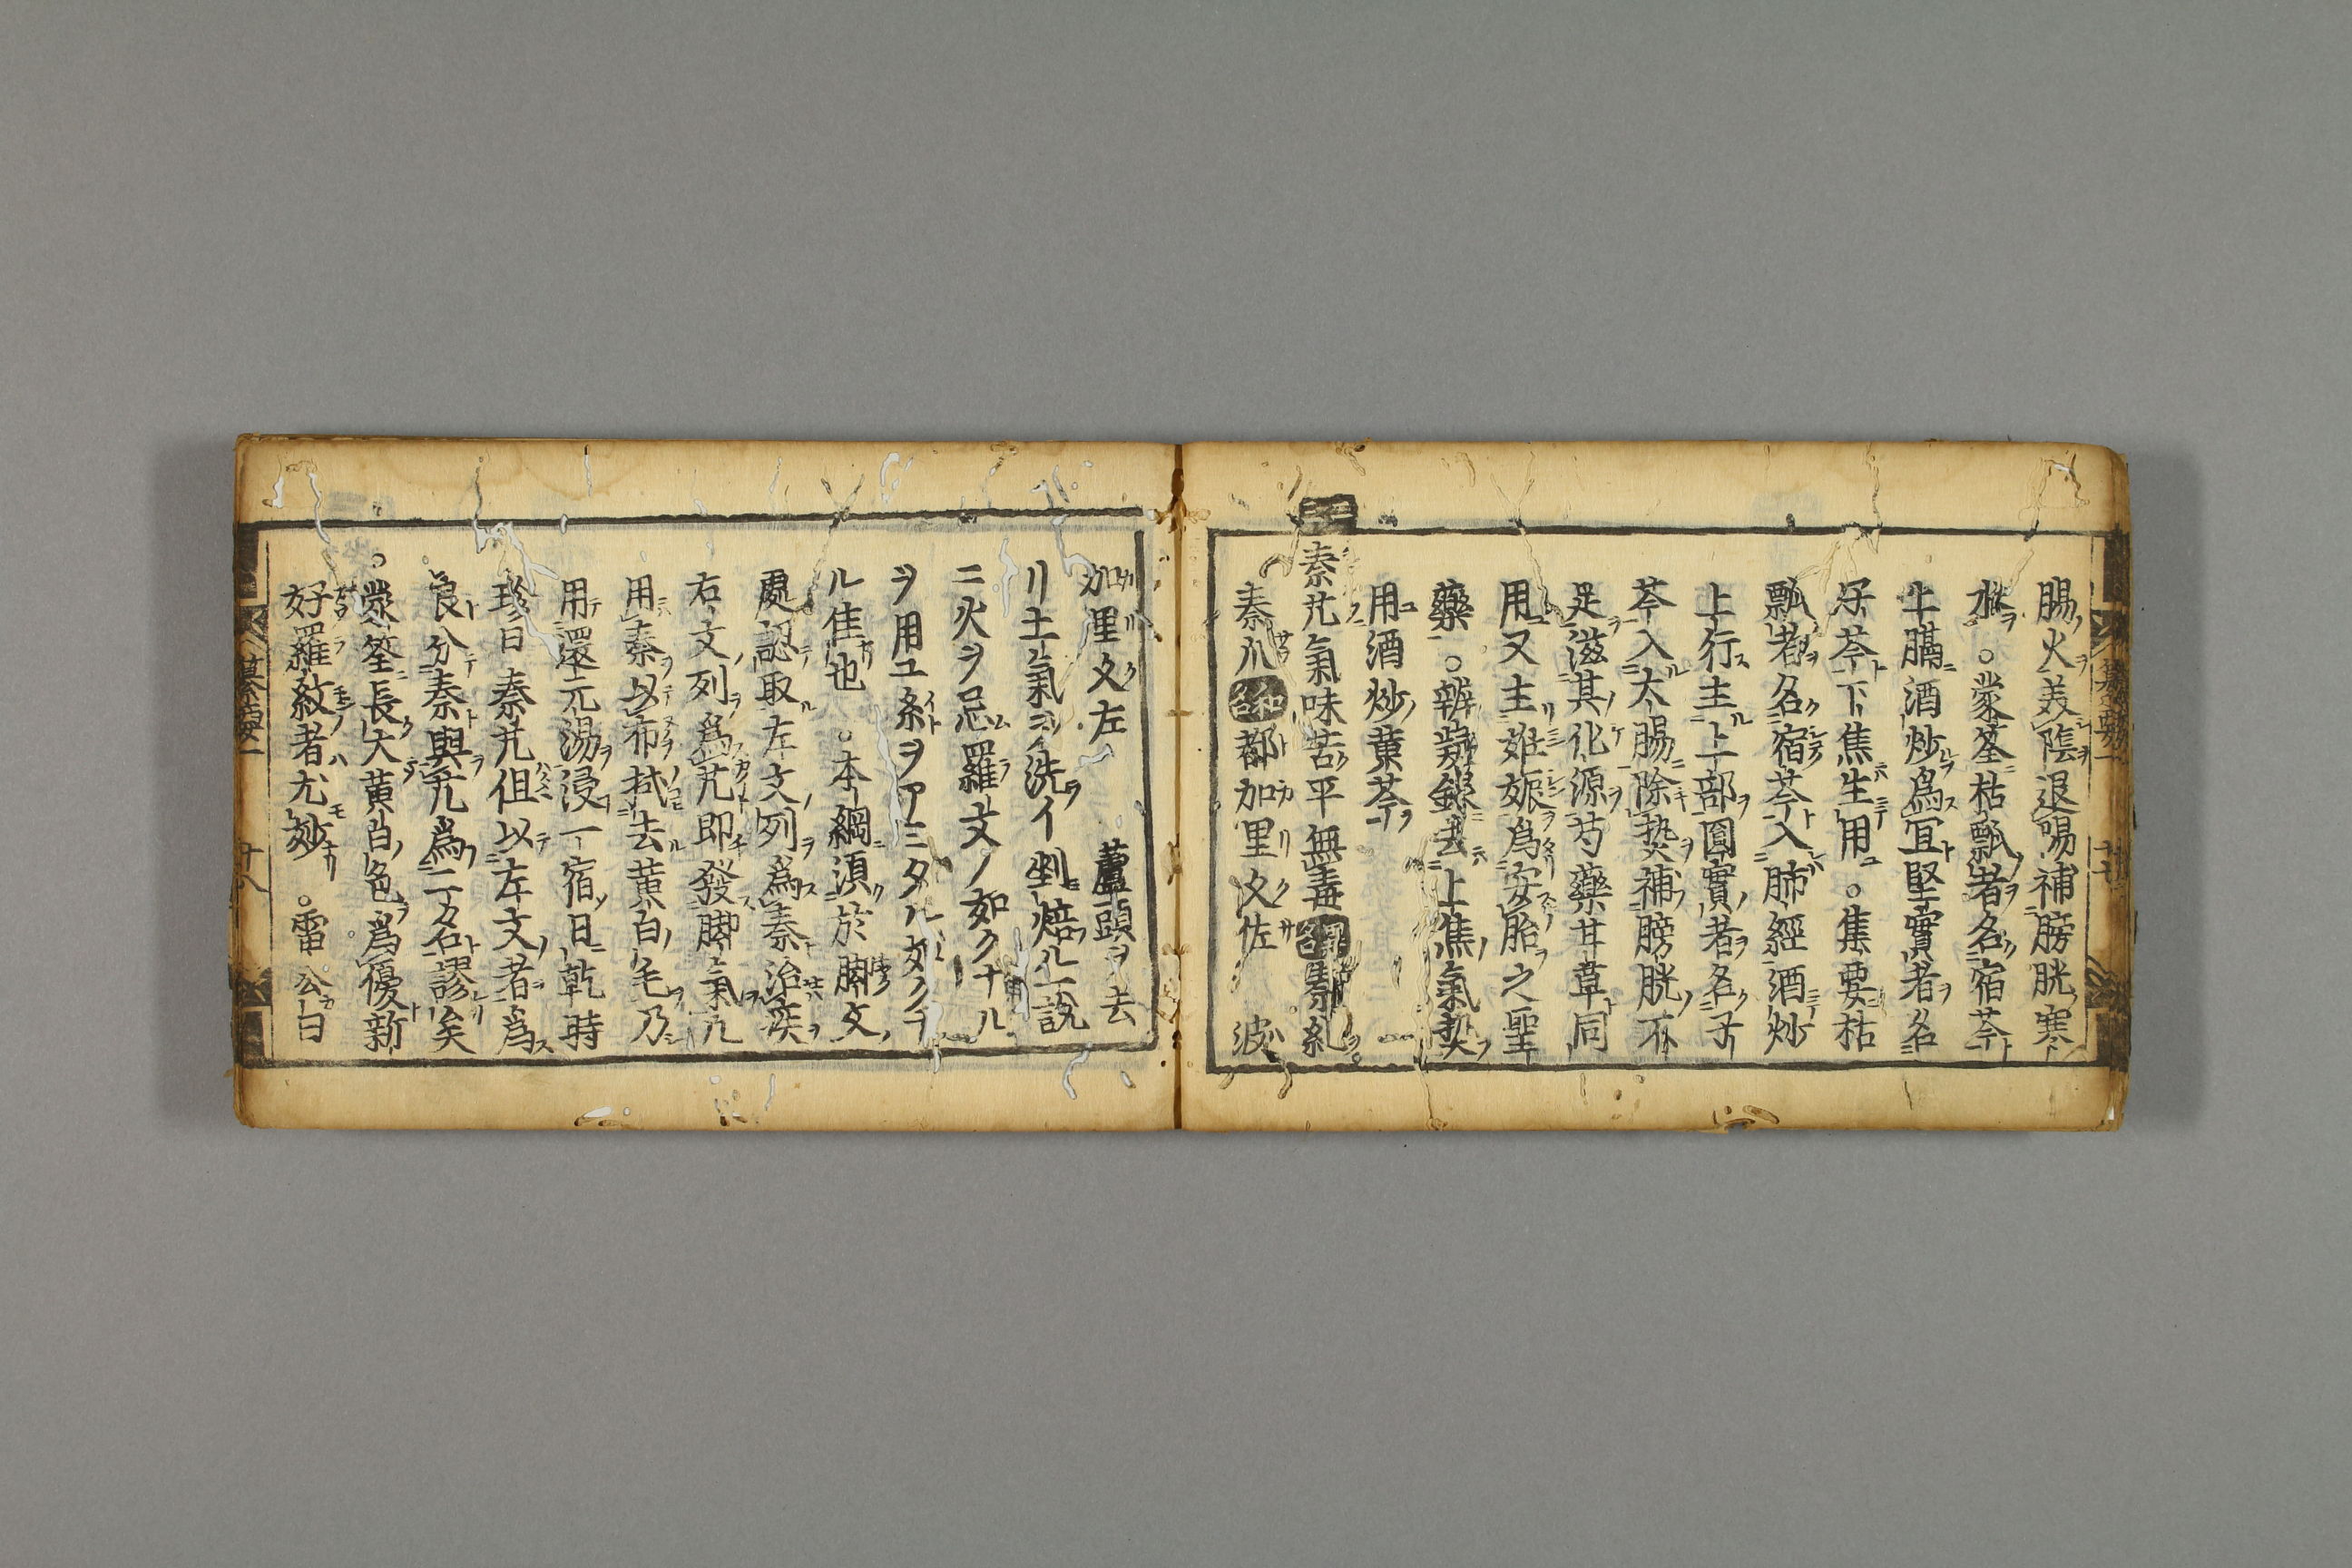 腸火美陰退陽補膀胱寒
水。蒙筌枯飄者名宿芩
牛膈酒炒爲宜堅實者名
子芩下焦生用。集要枯
飄者名宿芩入肺經酒炒
上行主上部圓實者名子
芩入大腸除熱補膀胱不
足滋其化源芍藥廿草同
用又主姙娠爲安胎之聖
藥。辨疑錄去上焦氣熱
用酒炒黄芩
秦艽氣味苦平無毒
秦爪和名都加里久佐 波
加里久左 蘆頭ヲ去
リ土氣ヲ洗イ剉焙ル一説
ニ火ヲ忌羅文ノ如クナル
ヲ用ユ糸ヲアミタル
ル佳也。本綱須於脚文
處認取左文列爲秦治疾
右文列爲艽即發脚氣凡
用秦以布拭去黄白毛乃
用還元湯浸一宿日乾時
珍曰秦艽但以左文者爲
良分秦與艽爲二名謬矣
。蒙筌長大黄白色爲優新
好羅紋者尤妙。雷公曰